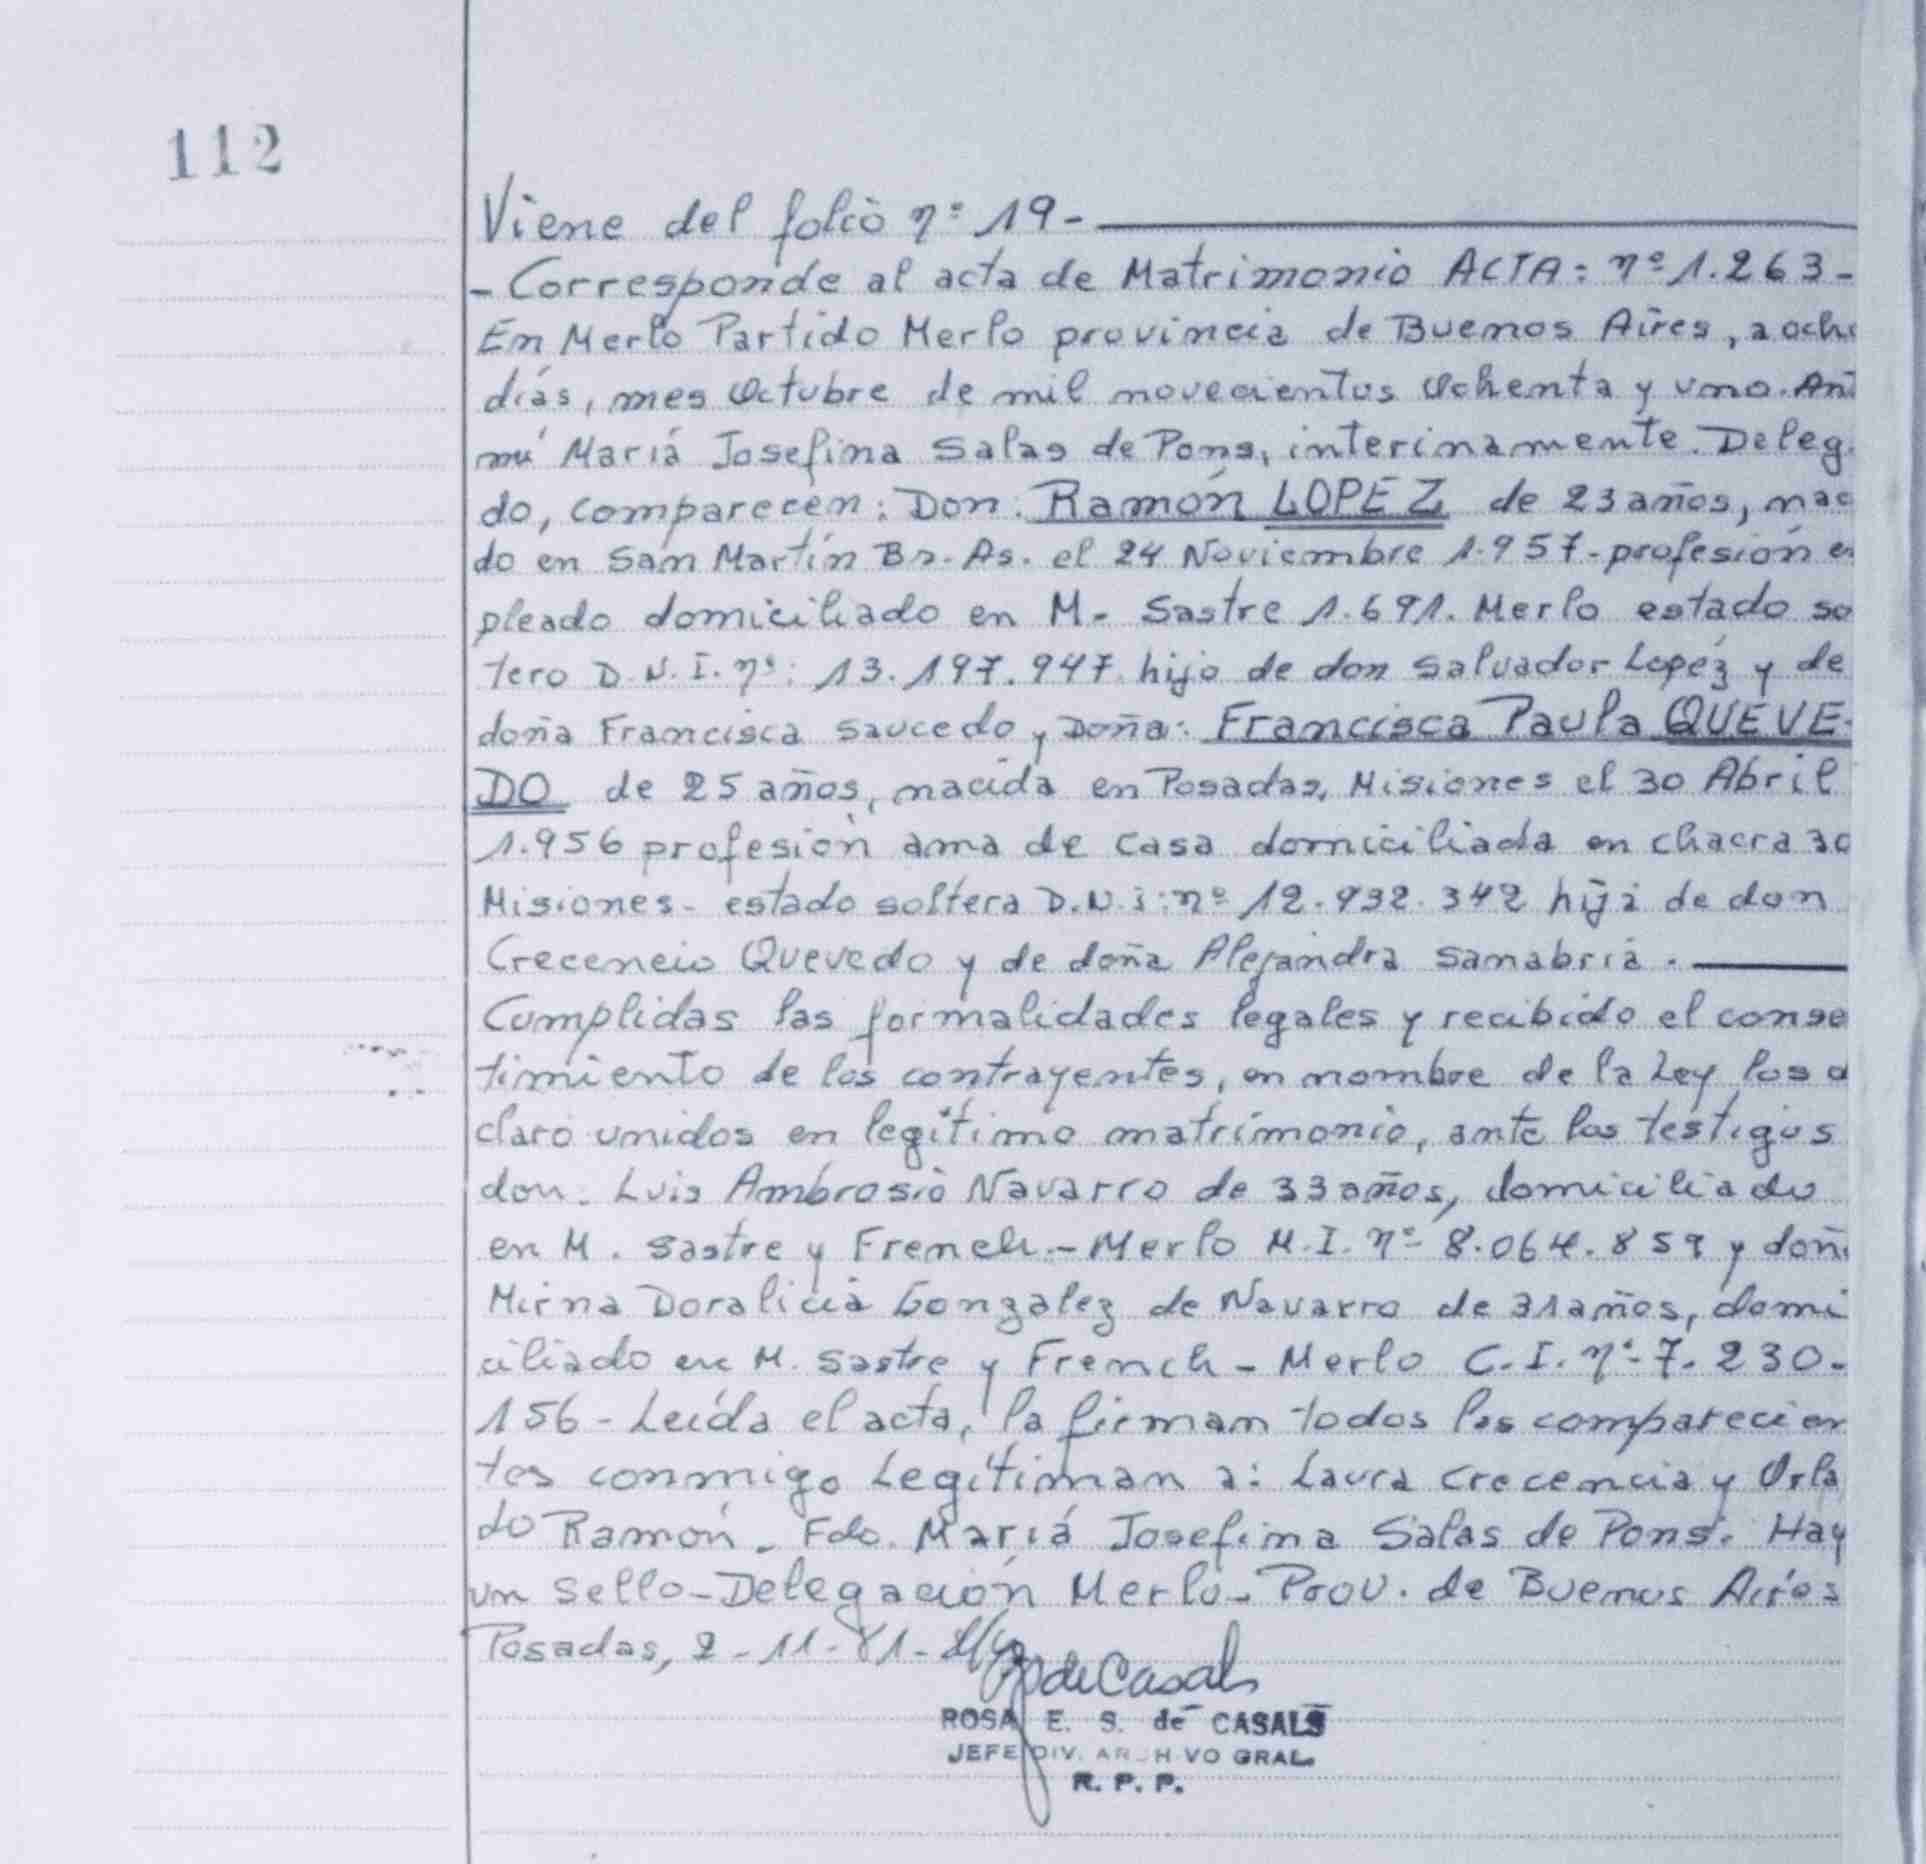 112
Viene del folio nº 19-
- Corresponde al acta de Matrimonio ACTA: nº 1.263-
En Merlo Partido Merlo provincia de Buenos Aires, a och
días, mes Octubre de mil novecientos Ochenta y uno. Ant
mí Mariá Josefina Salas de Pons, interinamente. Deleg
do, comparecen: Don: Ramón LOPEZ de 23 años, nac
do en San Martín Bs. As. el 24 Noviembre 1.957- profesión e
pleado domiciliado en M. Sastre 1.691. Merlo estado so
tero D.N.I. nº: 13.197.947 hijo de don Salvador Lopéz y de
doña Francisca Saucedo y Doña: Francisca Paula QUEVE-
DO de 25 años, nacida en Posadas, Misiones el 30 Abril
1.956 profesión ama de casa domiciliada en chacra 30
Misiones- estado soltera D.N.i: nº 12.932.342 hija de don
Crecencio Quevedo y de doña Alejandra Sanabria.
Cumplidas las formalidades legales y recibido el conse
timiento de los contrayentes, en nombre de la Ley los d
claro unidos en legítimo matrimonio, ante los testigos
don. Luis Ambrosio Navarro de 33 años, domiciliado
en M. Sastre y French.- Merlo M.I. nº- 8.064.859 y doñ
Mirna Doralicia Gonzalez de Navarro de 31 años, domi
ciliado en M. Sastre y French - Merlo C.I. nº- 7.230-
156 - Leída el acta, la firman todos los comparecien
tes conmigo Legítiman a: Laura Crecencia y Orla
do Ramón. Fdo. Mariá Josefina Salas de Pons. Hay
un Sello-Delegación Merlo- Prov. de Buenos Aires
Posadas, 2-11-81-
de Casals
ROSA E. S. de CASALS
JEFE DIV. ARCHIVO GRAL.
R. P. P.